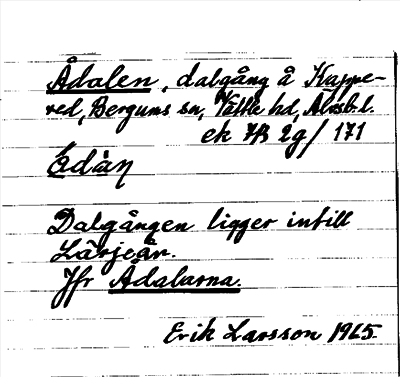 Ådalen, dalgång å Kappe-
red, Bergums sn, Vättle hd, Älvsb. l.
ek 7B 2g/171
Dalgången ligger intill
Lärjeån.
Jfr Ådalarna.
Erik Larsson 1925.